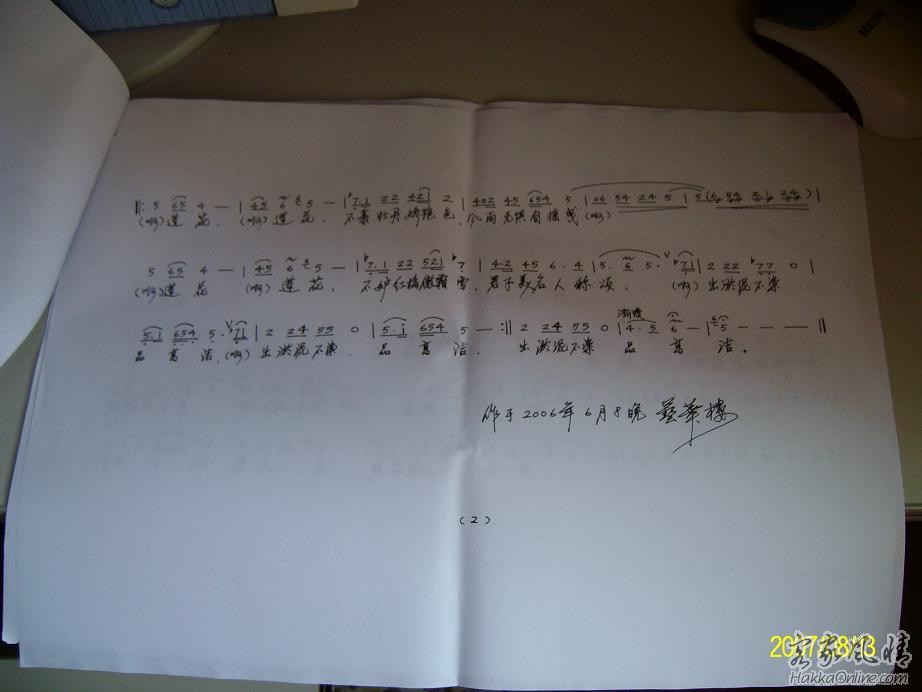 ‖: 5 65 4 — | 45 6 5 — | ♭7.1 22 421 2 | 402 45 654 5 | 06 54 24 5 | 5
(啊)莲花,(啊)莲花,不慕牡丹娇艳色,今雨无惧自摇曳(啊)
5 65 4 — | 45 6 5 — | ♭7.1 22 521 ♭7 | 4.2 45 6.4 | 5.6 5. ♭71 | 2 22 ♭77 0 |
(啊)莲花 (啊)莲花,不妒红梅傲霜雪,君子美名人称颂,(啊)出淤泥不染
5.1 654 5. ♭71 | 2 24 55 0 | 5.i 654 5 — :‖ 2 24 55 0 | 渐慢 4.5 6 — | 5 — — — ‖
品高洁,(啊)出淤泥不染,品高洁,出淤泥不染 品高洁。
作于2006年6月8晚 艺华楼
(2)
客家风情
HakkaOnline.com